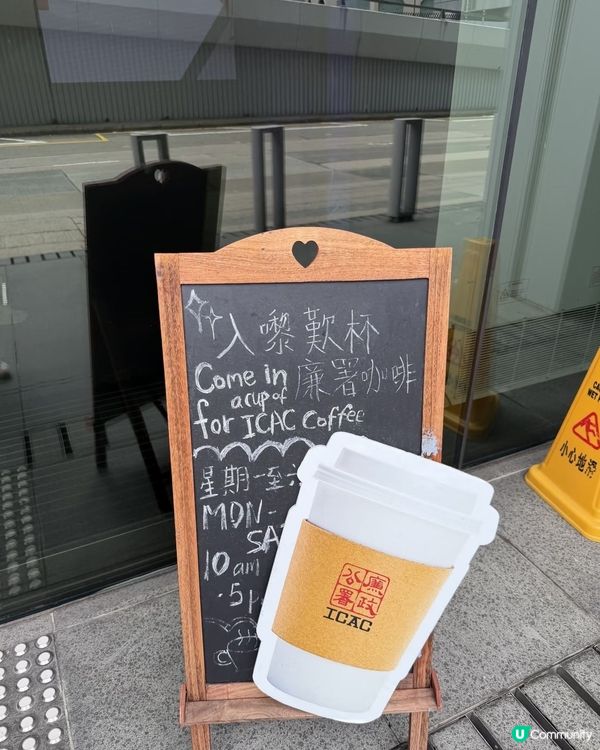 入嚟歎杯
Come in 廉署咖啡
a cup of
for ICAC Coffee
星期一至六
MON-
SA
10 am
-5p
廉政
公署
ICAC
CA
WET F
小心地滑
U Community